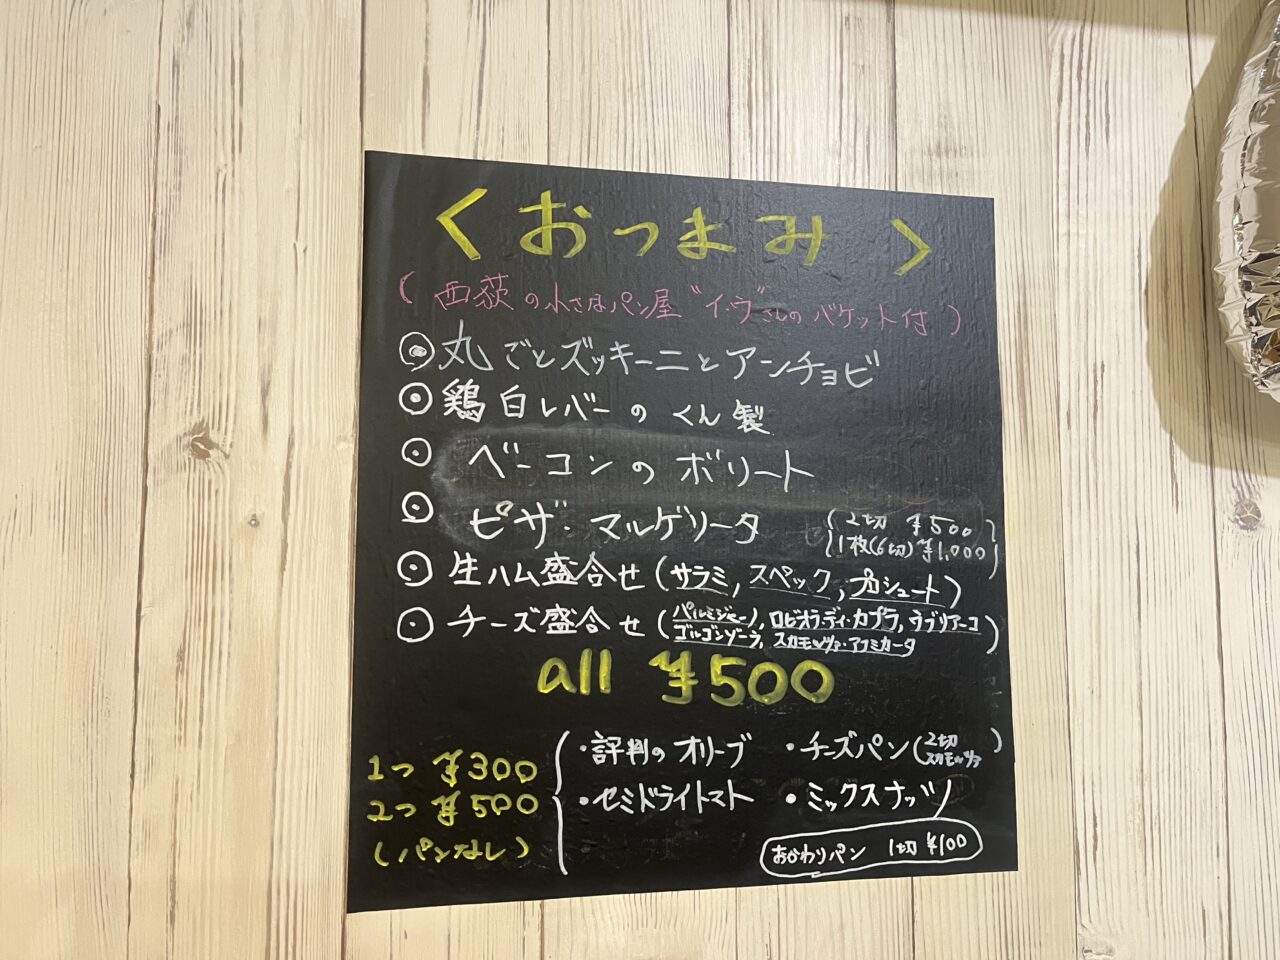 ＜おつまみ＞
(西荻の小さなパン屋"イ・ヴ"さんのバケット付)
◉丸ごとズッキーニとアンチョビ
◉鶏白レバーのくん製
◉ベーコンのボリート
◉ピザ・マルゲリータ (2切 ¥500
1枚(6切) ¥1,000)
◉生ハム盛合せ(サラミ,スペック,プロシュート)
◉チーズ盛合せ(パルミジャーノ,ロビオラディ・カプラ,ウブリアーコ
ゴルゴンゾーラ,スカモルツァ・アフミカータ)
all ¥500
1つ ¥300
2つ ¥500
(パンなし)
・評判のオリーブ ・チーズパン(2切 スカモルツァ)
・セミドライトマト ・ミックスナッツ
おかわりパン 1切 ¥100